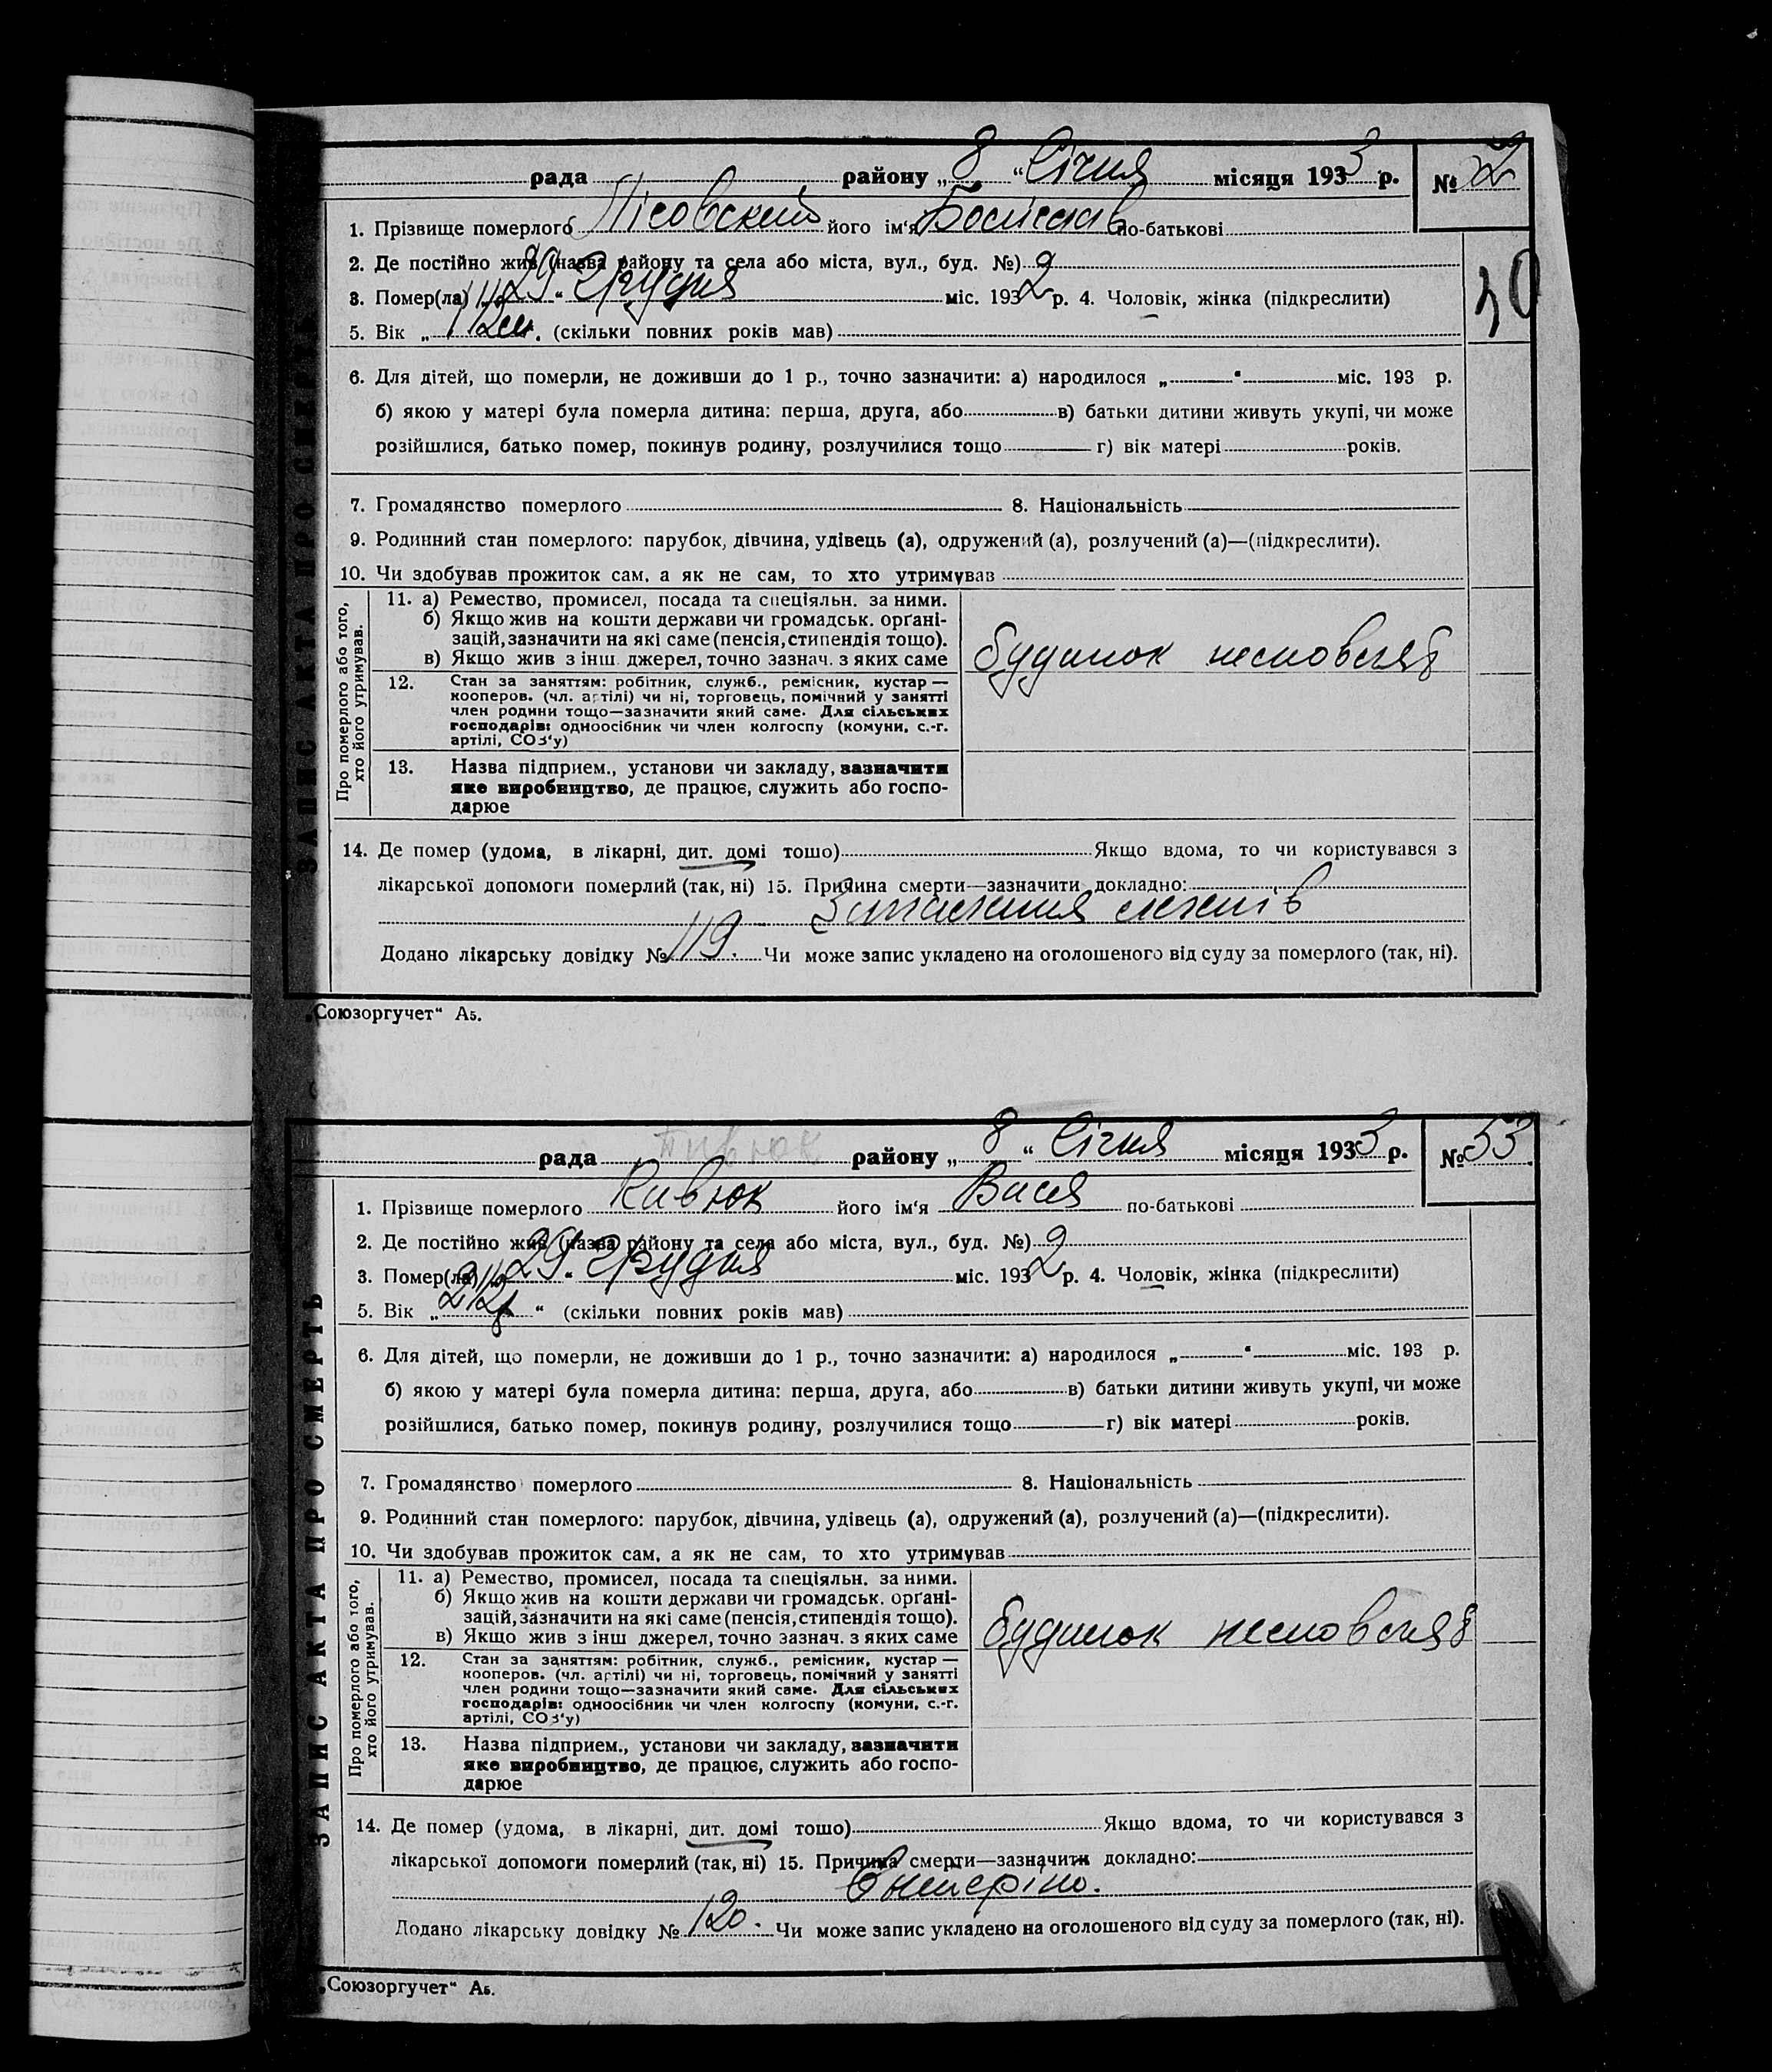 рада району „8“ Січня місяця 1933 р. № 52
1. Прізвище померлого Лісовский його ім‘я Болеслав по-батькові
2. Де постійно жив (назва району та села або міста, вул., буд. №)
3. Помер(ла) „29“ Грудня міс. 1932 р. 4. Чоловік, жінка (підкреслити)
30
5. Вік „ (скільки повних років мав)
6. Для дітей, що померли, не доживши до 1 р., точно зазначити: а) народилося „ “ міс. 193 р.
б) якою у матері була померла дитина: перша, друга, або в) батьки дитини живуть укупі, чи може
розійшлися, батько помер, покинув родину, розлучилися тощо г) вік матері років.
7. Громадянство померлого 8. Національність
9. Родинний стан померлого: парубок, дівчина, удівець (а), одружений (а), розлучений (а)—(підкреслити).
10. Чи здобував прожиток сам, а як не сам, то хто утримував
Про померлого або того, хто його утримував.
11. а) Ремество, промисел, посада та спеціяльн. за ними.
б) Якщо жив на кошти держави чи громадськ. орґані-
зацій, зазначити на які саме (пенсія, стипендія тощо).
в) Якщо жив з інш. джерел, точно зазнач. з яких саме
будинок немовлят
12. Стан за заняттям: робітник, служб., ремісник, кустар —
кооперов. (чл. артілі) чи ні, торговець, помічний у занятті
член родини тощо—зазначити який саме. Для сільських
господарів: одноосібник чи член колгоспу (комуни, с.-г.
артілі, СОЗ‘у)
13. Назва підприєм., установи чи закладу, зазначити
яке виробництво, де працює, служить або госпо-
дарює
14. Де помер (удома, в лікарні, дит. домі тошо) Якщо вдома, то чи користувався з
лікарської допомоги померлий (так, ні) 15. Причина смерти—зазначити докладно:
Запалення легенів
Додано лікарську довідку № 119. Чи може запис укладено на оголошеного від суду за померлого (так, ні).
ЗАПИС АКТА ПРО СМЕРТЬ
„Союзоргучет“ А5.
Пивюк
рада району „8“ Січня місяця 1933 р. № 53
1. Прізвище померлого Кивюк його ім‘я Вася по-батькові
2. Де постійно жив (назва району та села або міста, вул., буд. №)
3. Помер(ла) „29“ Грудня міс. 1932 р. 4. Чоловік, жінка (підкреслити)
5. Вік „2 1/2 р“ (скільки повних років мав)
6. Для дітей, що померли, не доживши до 1 р., точно зазначити: а) народилося „ “ міс. 193 р.
б) якою у матері була померла дитина: перша, друга, або в) батьки дитини живуть укупі, чи може
розійшлися, батько помер, покинув родину, розлучилися тощо г) вік матері років.
7. Громадянство померлого 8. Національність
9. Родинний стан померлого: парубок, дівчина, удівець (а), одружений (а), розлучений (а)—(підкреслити).
10. Чи здобував прожиток сам, а як не сам, то хто утримував
Про померлого або того, хто його утримував.
11. а) Ремество, промисел, посада та спеціяльн. за ними.
б) Якщо жив на кошти держави чи громадськ. орґані-
зацій, зазначити на які саме (пенсія, стипендія тощо).
в) Якщо жив з інш джерел, точно зазнач. з яких саме
будинок немовлят
12. Стан за заняттям: робітник, служб., ремісник, кустар —
кооперов. (чл. артілі) чи ні, торговець, помічний у занятті
член родини тощо—зазначити який саме. Для сільських
господарів: одноосібник чи член колгоспу (комуни, с.-г.
артілі, СОЗ‘у)
13. Назва підприєм., установи чи закладу, зазначити
яке виробництво, де працює, служить або госпо-
дарює
14. Де помер (удома, в лікарні, дит. домі тошо) Якщо вдома, то чи користувався з
лікарської допомоги померлий (так, ні) 15. Причина смерти—зазначити докладно:
Додано лікарську довідку № 120. Чи може запис укладено на оголошеного від суду за померлого (так, ні).
ЗАПИС АКТА ПРО СМЕРТЬ
„Союзоргучет“ А5.